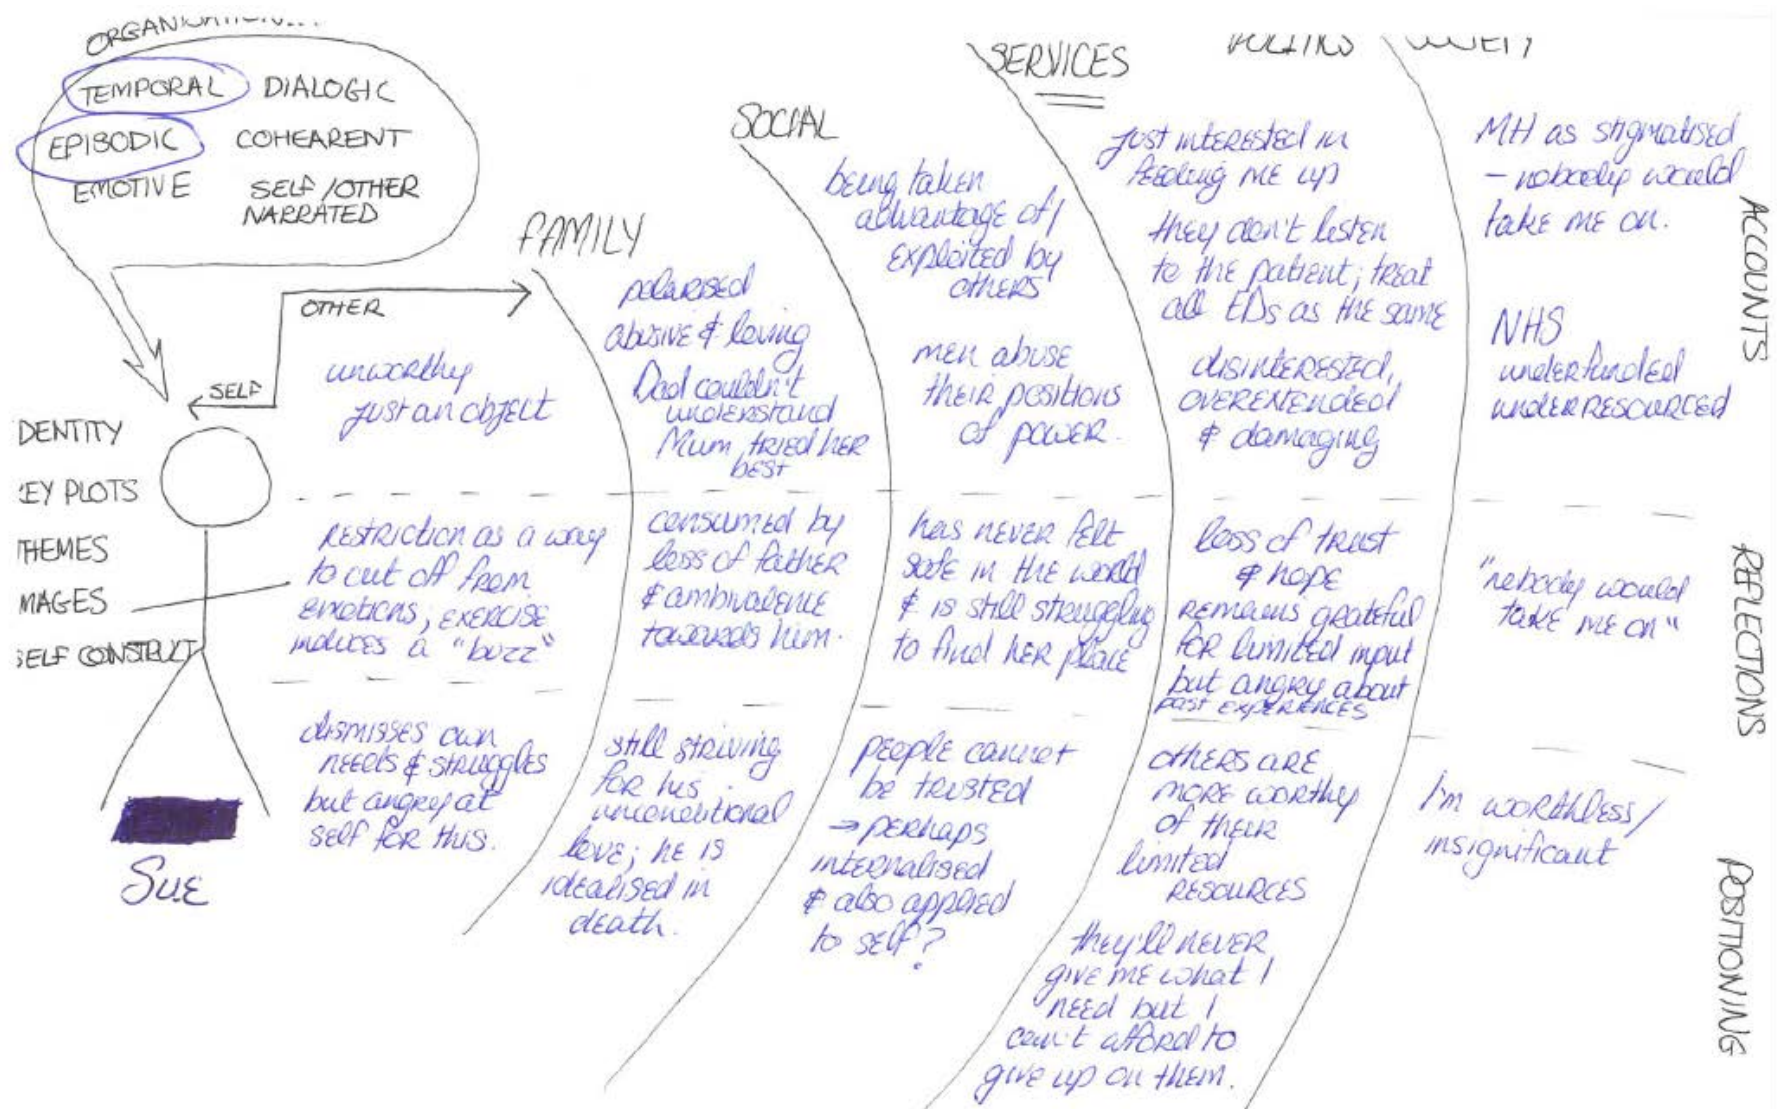 TEMPORAL DIALOGIC
EPISODIC COHEARENT
EMOTIVE SELF/OTHER
NARRATED
OTHER
SELF
DENTITY
EY PLOTS
THEMES
MAGES
SELF CONSTRUCT
SUE
unworthy
just an object
RESTRICTION as a way
to cut off from
emotions, EXERCISE
induces a "buzz"
dismisses own
needs & struggles
but angry at
self for this.
FAMILY
polarised
abusive & loving
Dad couldn't
understand
Mum tried HER
best
consumed by
loss of father
& ambivalence
towards him.
still striving
for his
unconditional
love; he is
idealised in
death.
SOCIAL
being taken
advantage of/
exploited by
others
men abuse
their positions
of power.
has never felt
safe in the world
& is still struggling
to find her place
people cannot
be trusted
→ perhaps
internalised
& also applied
to self?
SERVICES
just interested in
feeding me up
they don't listen
to the patient; treat
all EDs as the same
disinterested,
overextended
& damaging
loss of trust
& hope
remains grateful
for limited input
but angry about
past experiences
others are
more worthy
of their
limited
resources
they'll never
give me what I
need but I
can't afford to
give up on them.
MH as stigmatised
- nobody would
take me on.
NHS
underfunded
under RESOURCED
"nobody would
take me on"
I'm worthless/
insignificant
ACCOUNTS
REFLECTIONS
POSITIONING